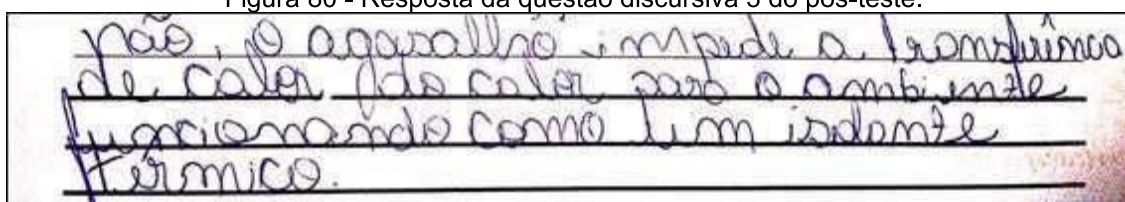 Figura 80 - Resposta da questão discursiva 5 do pós-teste.
não, o agasalho impede a transferência
de calor do calor para o ambiente
funcionando como um isolante
térmico.